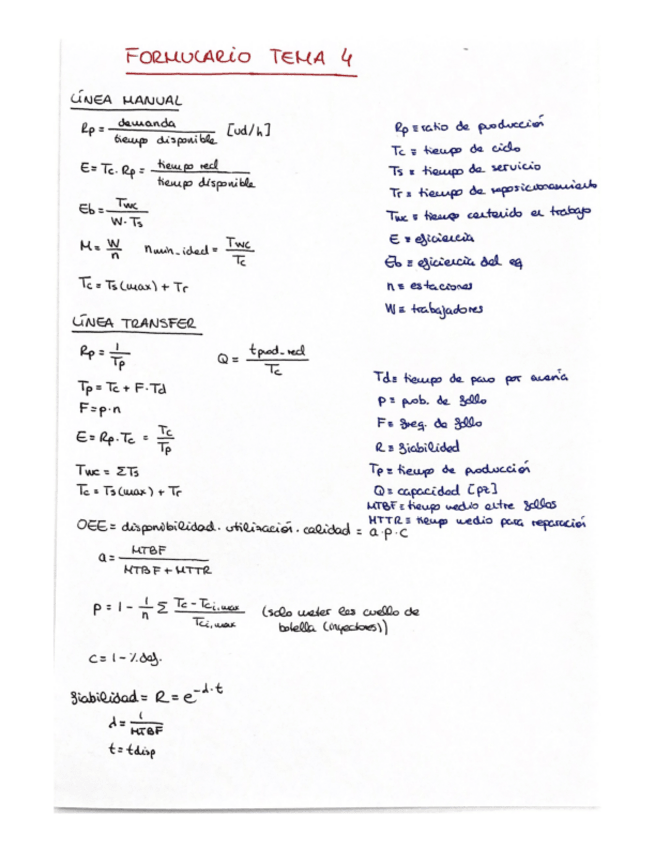 FORMULARIO TEMA 4
LÍNEA MANUAL
Rp = demanda / tiempo disponible [ud/h]
E = Tc · Rp = tiempo real / tiempo disponible
Eb = Twc / W · Ts
M = W / n    nmin_ideal = Twc / Tc
Tc = Ts(max) + Tr
Rp ≡ ratio de producción
Tc ≡ tiempo de ciclo
Ts ≡ tiempo de servicio
Tr ≡ tiempo de reposicionamiento
Twc ≡ tiempo contenido en trabajo
E ≡ eficiencia
Eb ≡ eficiencia del eq
n ≡ estaciones
W ≡ trabajadores
LÍNEA TRANSFER
Rp = 1 / Tp    Q = tprod_real / Tc
Tp = Tc + F · Td
F = p · n
E = Rp · Tc = Tc / Tp
Twc = ΣTs
Tc = Ts(max) + Tr
Td ≡ tiempo de paro por avería
p ≡ prob. de fallo
F ≡ freq. de fallo
R ≡ fiabilidad
Tp ≡ tiempo de producción
Q ≡ capacidad [pz]
MTBF ≡ tiempo medio entre fallos
MTTR ≡ tiempo medio para reparación
OEE = disponibilidad · utilización · calidad = a · p · c
a = MTBF / MTBF + MTTR
p = 1 - 1/n Σ Tc - Tci,max / Tci,max (solo meter los cuello de
botella (inyectores))
c = 1 - % def.
fiabilidad = R = e^-λ·t
λ = 1 / MTBF
t = tdisp